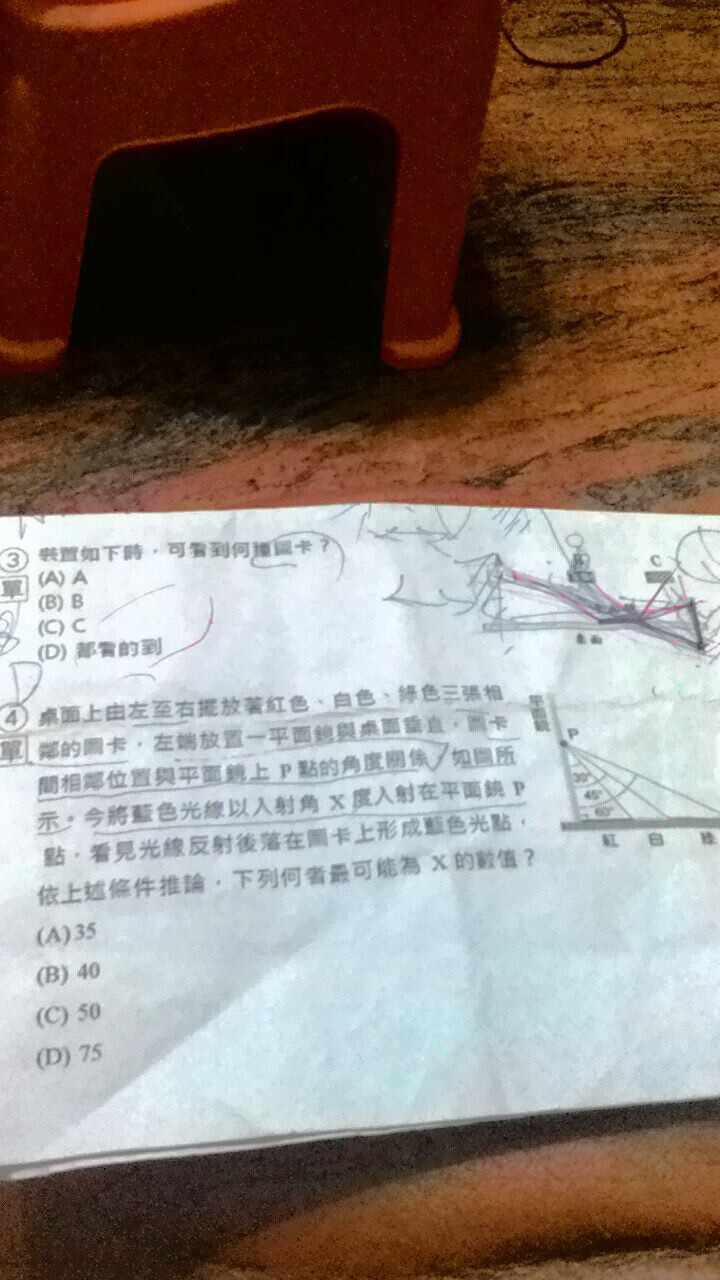 ③ 裝置如下時，可看到何種圖卡？
單 (A) A
(B) B
(C) C
(D) 都看的到
B
C
桌面
④ 桌面上由左至右擺放著紅色、白色、綠色三張相
單 鄰的圖卡，左端放置一平面鏡與桌面垂直，圖卡
間相鄰位置與平面鏡上 P 點的角度關係，如圖所
示。今將藍色光線以入射角 X 度入射在平面鏡 P
點，看見光線反射後落在圖卡上形成藍色光點，
依上述條件推論，下列何者最可能為 X 的數值？
(A) 35
(B) 40
(C) 50
(D) 75
平面鏡
P
30°
45°
60°
紅 白 綠